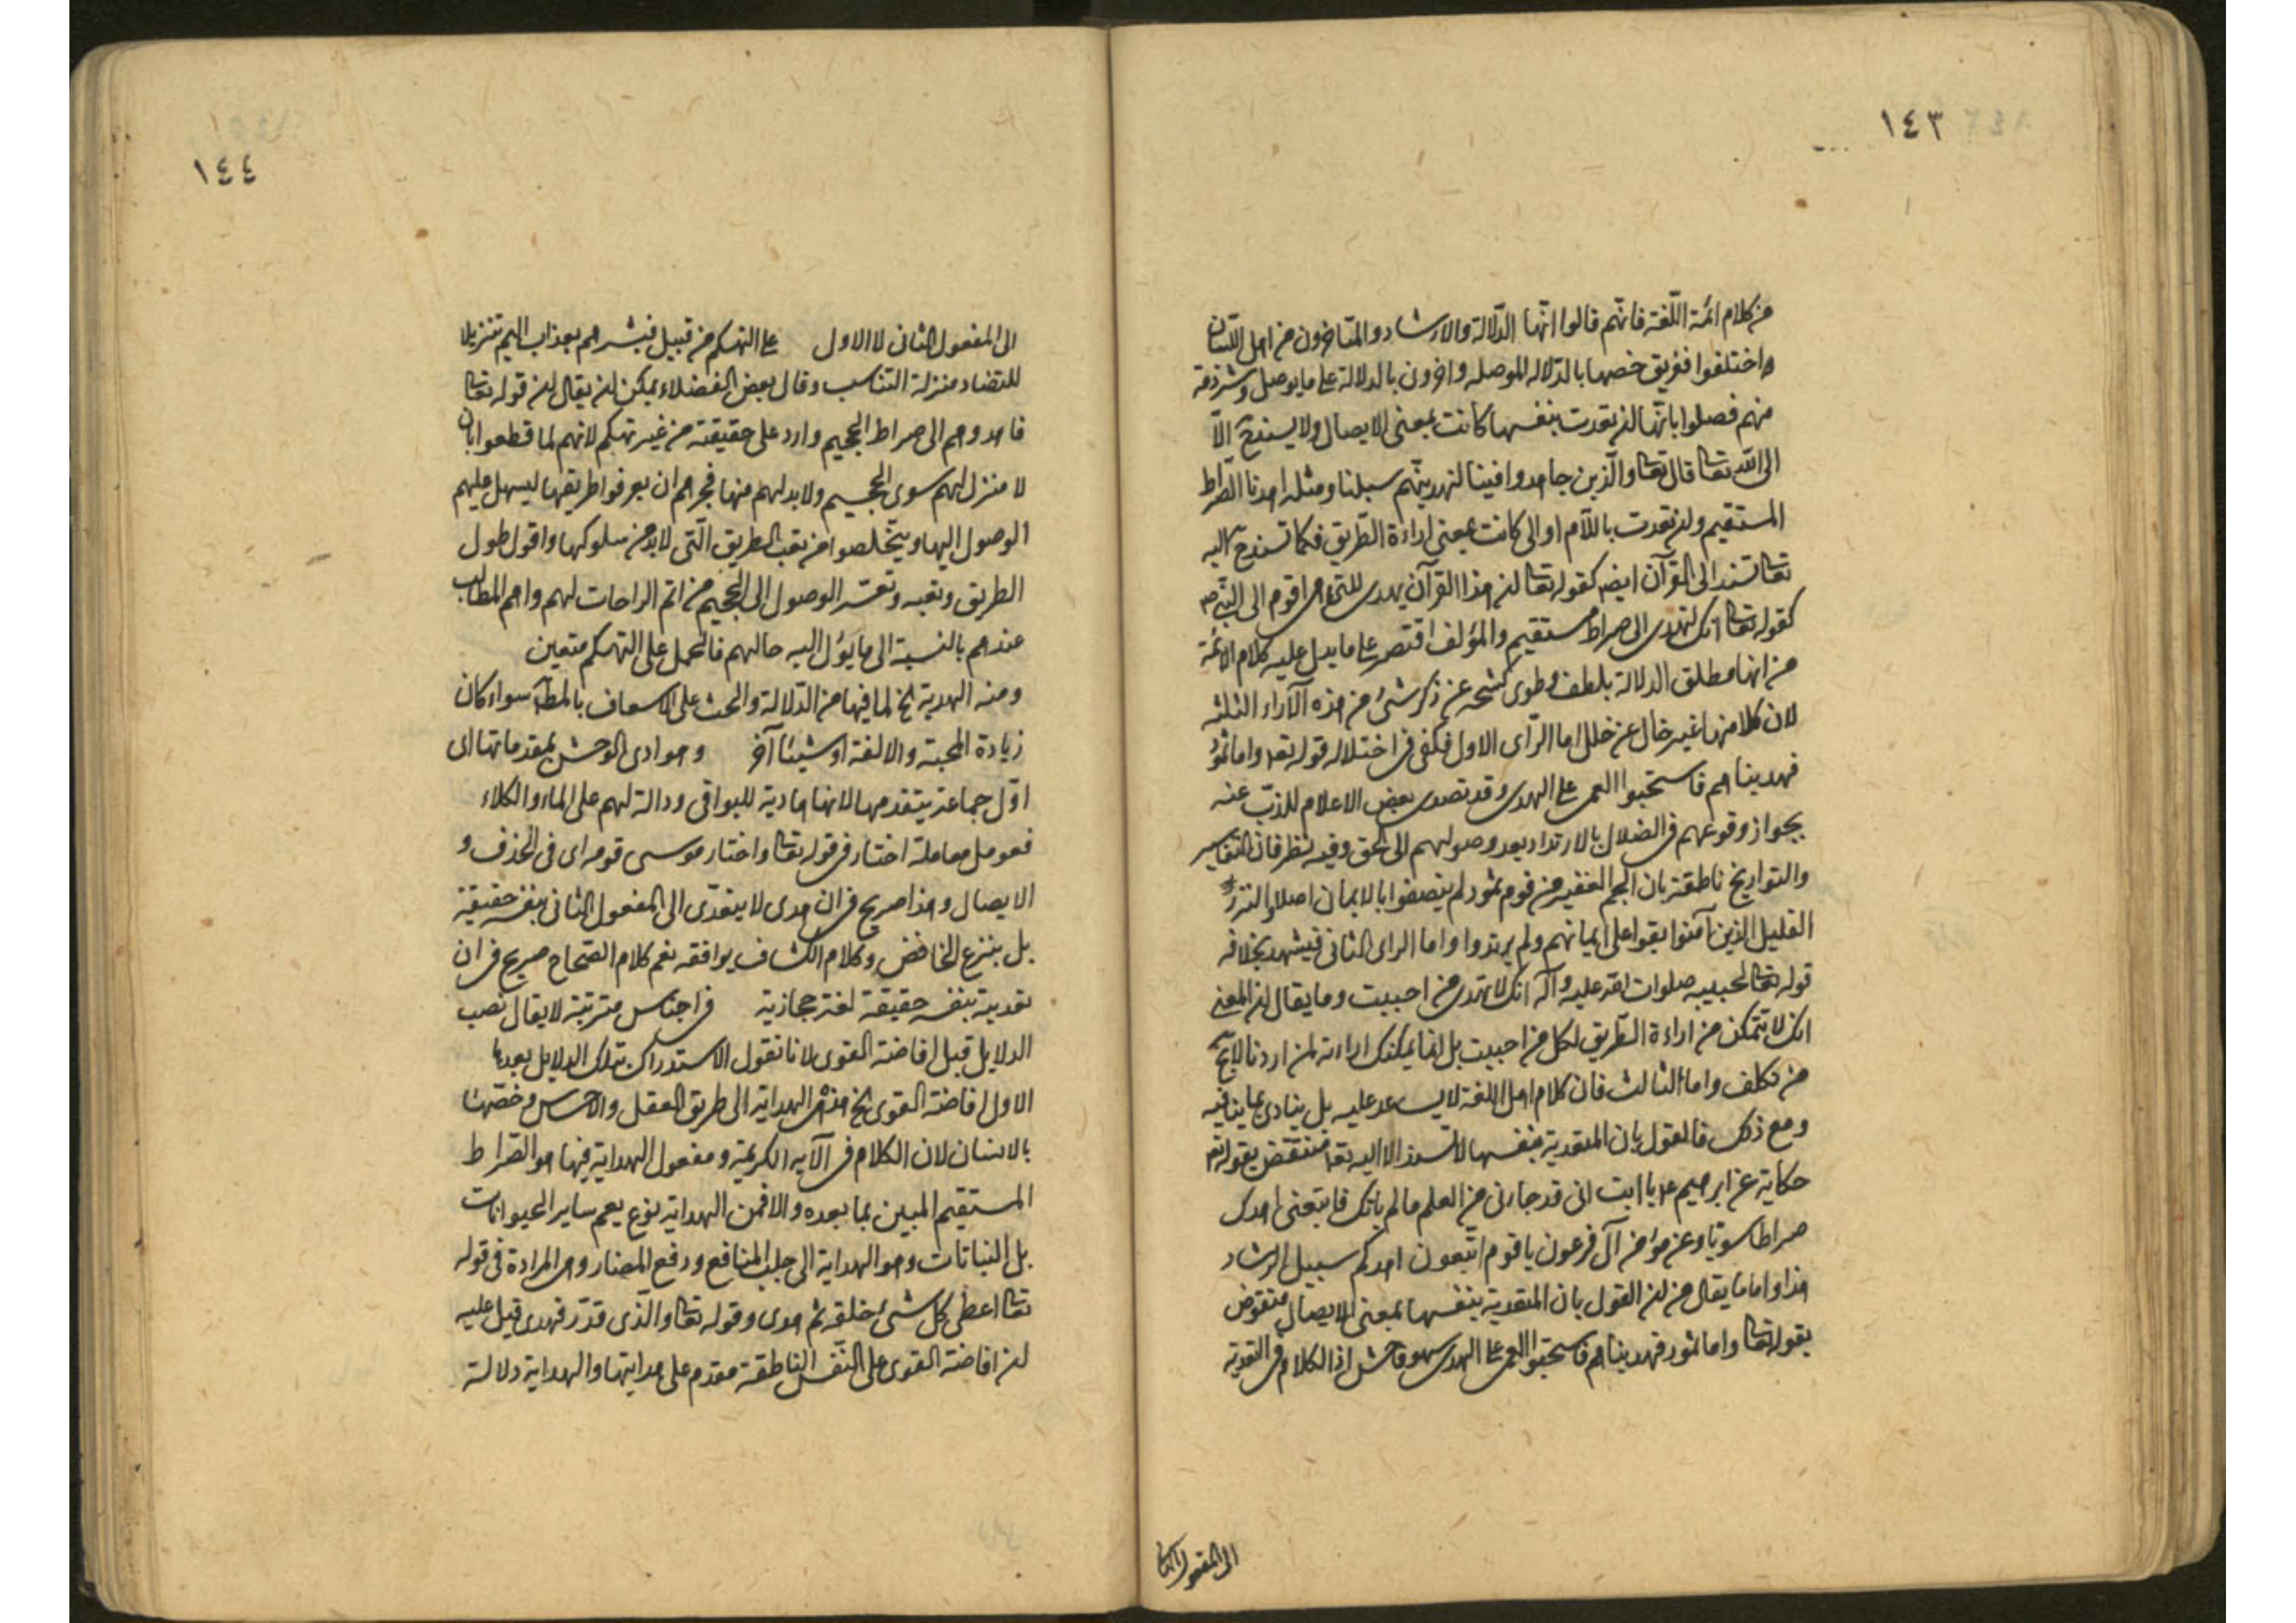 ١٤٣
من كلام ائمة اللّغة فانّهم قالوا انّها الدّلالة والارشاد والمتاخرون من اهل اللّسان
واختلفوا ففريق خصها بالدّلاله الموصله واخرون بالدلالة على ما يوصل وشرذمة
منهم فصلوا بانّها لن تعدت بنفسها كانت بمعنى الايصال ولا يسندح الّا
الى اللّه تعا قال تعا والّذين جاهدوا فينا لنهدينّهم سبلنا ومثله اهدنا الصّراط
المستقيم ولن تعدت باللّام او الى كانت بمعنى اراءة الطّريق فكما تسندح اليه
تعا تسند الى القرآن ايض كقوله تعا لن هذا القرآن يهدى للتى هى اقوم الى النّبى ص
كقوله تعا انّك لتهدى الى صراط مستقيم والمؤلف اقتصر على ما يدل عليه كلام الائمة
من انها مطلق الدلالة بلطف وطوى كشحه عن ذكر شئ من هذه الآراء الثلثه
لان كلا منها غير خال عن خلل اما الرّاى الاول فكفى فى اختلاله قوله تعا واما ثمود
فهديناهم فاستحبوا العمى على الهدى وقد تصدى بعض الاعلام للذبّ عنه
بجواز وقوعهم فى الضلال بالارتداد بعد وصولهم الى الحق وفيه نظر فان التفاسير
والتواريخ ناطقة بان الجم الغفير من قوم ثمود لم يتصفوا بالايمان اصلا والنزر
القليل الذين آمنوا بقوا على ايمانهم ولم يرتدوا واما الراى الثانى فيشهد بخلافه
قوله تعا لحبيبه صلوات اللّه عليه وآله انّك لا تهدى من احببت وما يقال لن المعنى
انك لا تتمكن من اراءة الطّريق لكل من احببت بل انما يمكنك اراءته لمن اردنا لا يخ
من تكلف واما الثالث فان كلام اهل اللغة لا يساعد عليه بل ينادى بما ينافيه
ومع ذلك فالقول بان المتعدية بنفسها لا تسند الا اليه تعا منتقض بقوله تعا
حكاية عن ابرهيم ع يا ابت انى قد جاءنى من العلم ما لم ياتك فاتبعنى اهدك
صراطا سويّا وعن مؤمن آل فرعون يا قوم اتّبعون اهدكم سبيل الرشاد
هذا واما ما يقال من لن القول بان المتعدية بنفسها بمعنى الايصال منقوض
بقوله تعا واما ثمود فهديناهم فاستحبّوا العمى على الهدى سهو فاحش اذ الكلام فى التعدية
الى المفعول الثا
١٤٤
الى المفعول الثانى لا الاول على التهكم من قبيل فبشرهم بعذاب اليم تنزيلا
للتضاد منزلة التناسب وقال بعض الفضلاء يمكن لن يقال لن قوله تعا
فاهدوهم الى صراط الجحيم وارد على حقيقته من غير تهكم لانهم لما قطعوا بان
لا منزل لهم سوى الجحيم ولا بد لهم منها فجرهم ان يعرفوا طريقها ليسهل عليهم
الوصول اليها ويتخلصوا من تعب الطريق الّتى لا بد من سلوكها واقول طول
الطريق وتعبه وتعسر الوصول الى الجحيم من اتم الراحات لهم واهم المطالب
عندهم بالنسبة الى ما يؤل اليه حالهم فالحمل على التهكم متعين
ومنه الهدية الخ لما فيها من الدّلالة والحث على الاسعاف بالمطلّب سواء كان
زيادة المحبة والالفة او شيئا آخر وهوادى الوحش لمقدماتها اى
اوّل جماعة يتقدمها لانها هادية للبواقى ودالة لهم على الماء والكلاء
فعومل معاملة اختار فى قوله تعا واختار موسى قومه اى فى الحذف و
الايصال وهذا صريح فى ان هدى لا يتعدّى الى المفعول الثانى بنفسه حقيقة
بل بنزع الخافض وكلام الكشاف يوافقه نعم كلام الصحاح صريح فى ان
تعديته بنفسه حقيقة لغة حجازية فى اجناس مترتبة لا يقال نصب
الدلايل قبل افاضة القوى لانا نقول الاستدراك بتلك الدلايل بعدها
الاول افاضة القوى الخ هذه الهداية الى طريق العقل والاحساس وخصّها
بالانسان لان الكلام فى الآيه الكريمة ومفعول الهداية فيها هو الصّراط
المستقيم المبين بما بعده والا فمن الهداية نوع يعم ساير الحيوانات
بل النباتات وهو الهداية الى جلب المنافع ودفع المضار وهى المرادة فى قوله
تعا اعطى كل شئ خلقه ثم هدى وقوله تعا والّذى قدّر فهدى قيل عليه
لن افاضة القوى على النّفس الناطقة مقدم على هدايتها والهداية دلالة